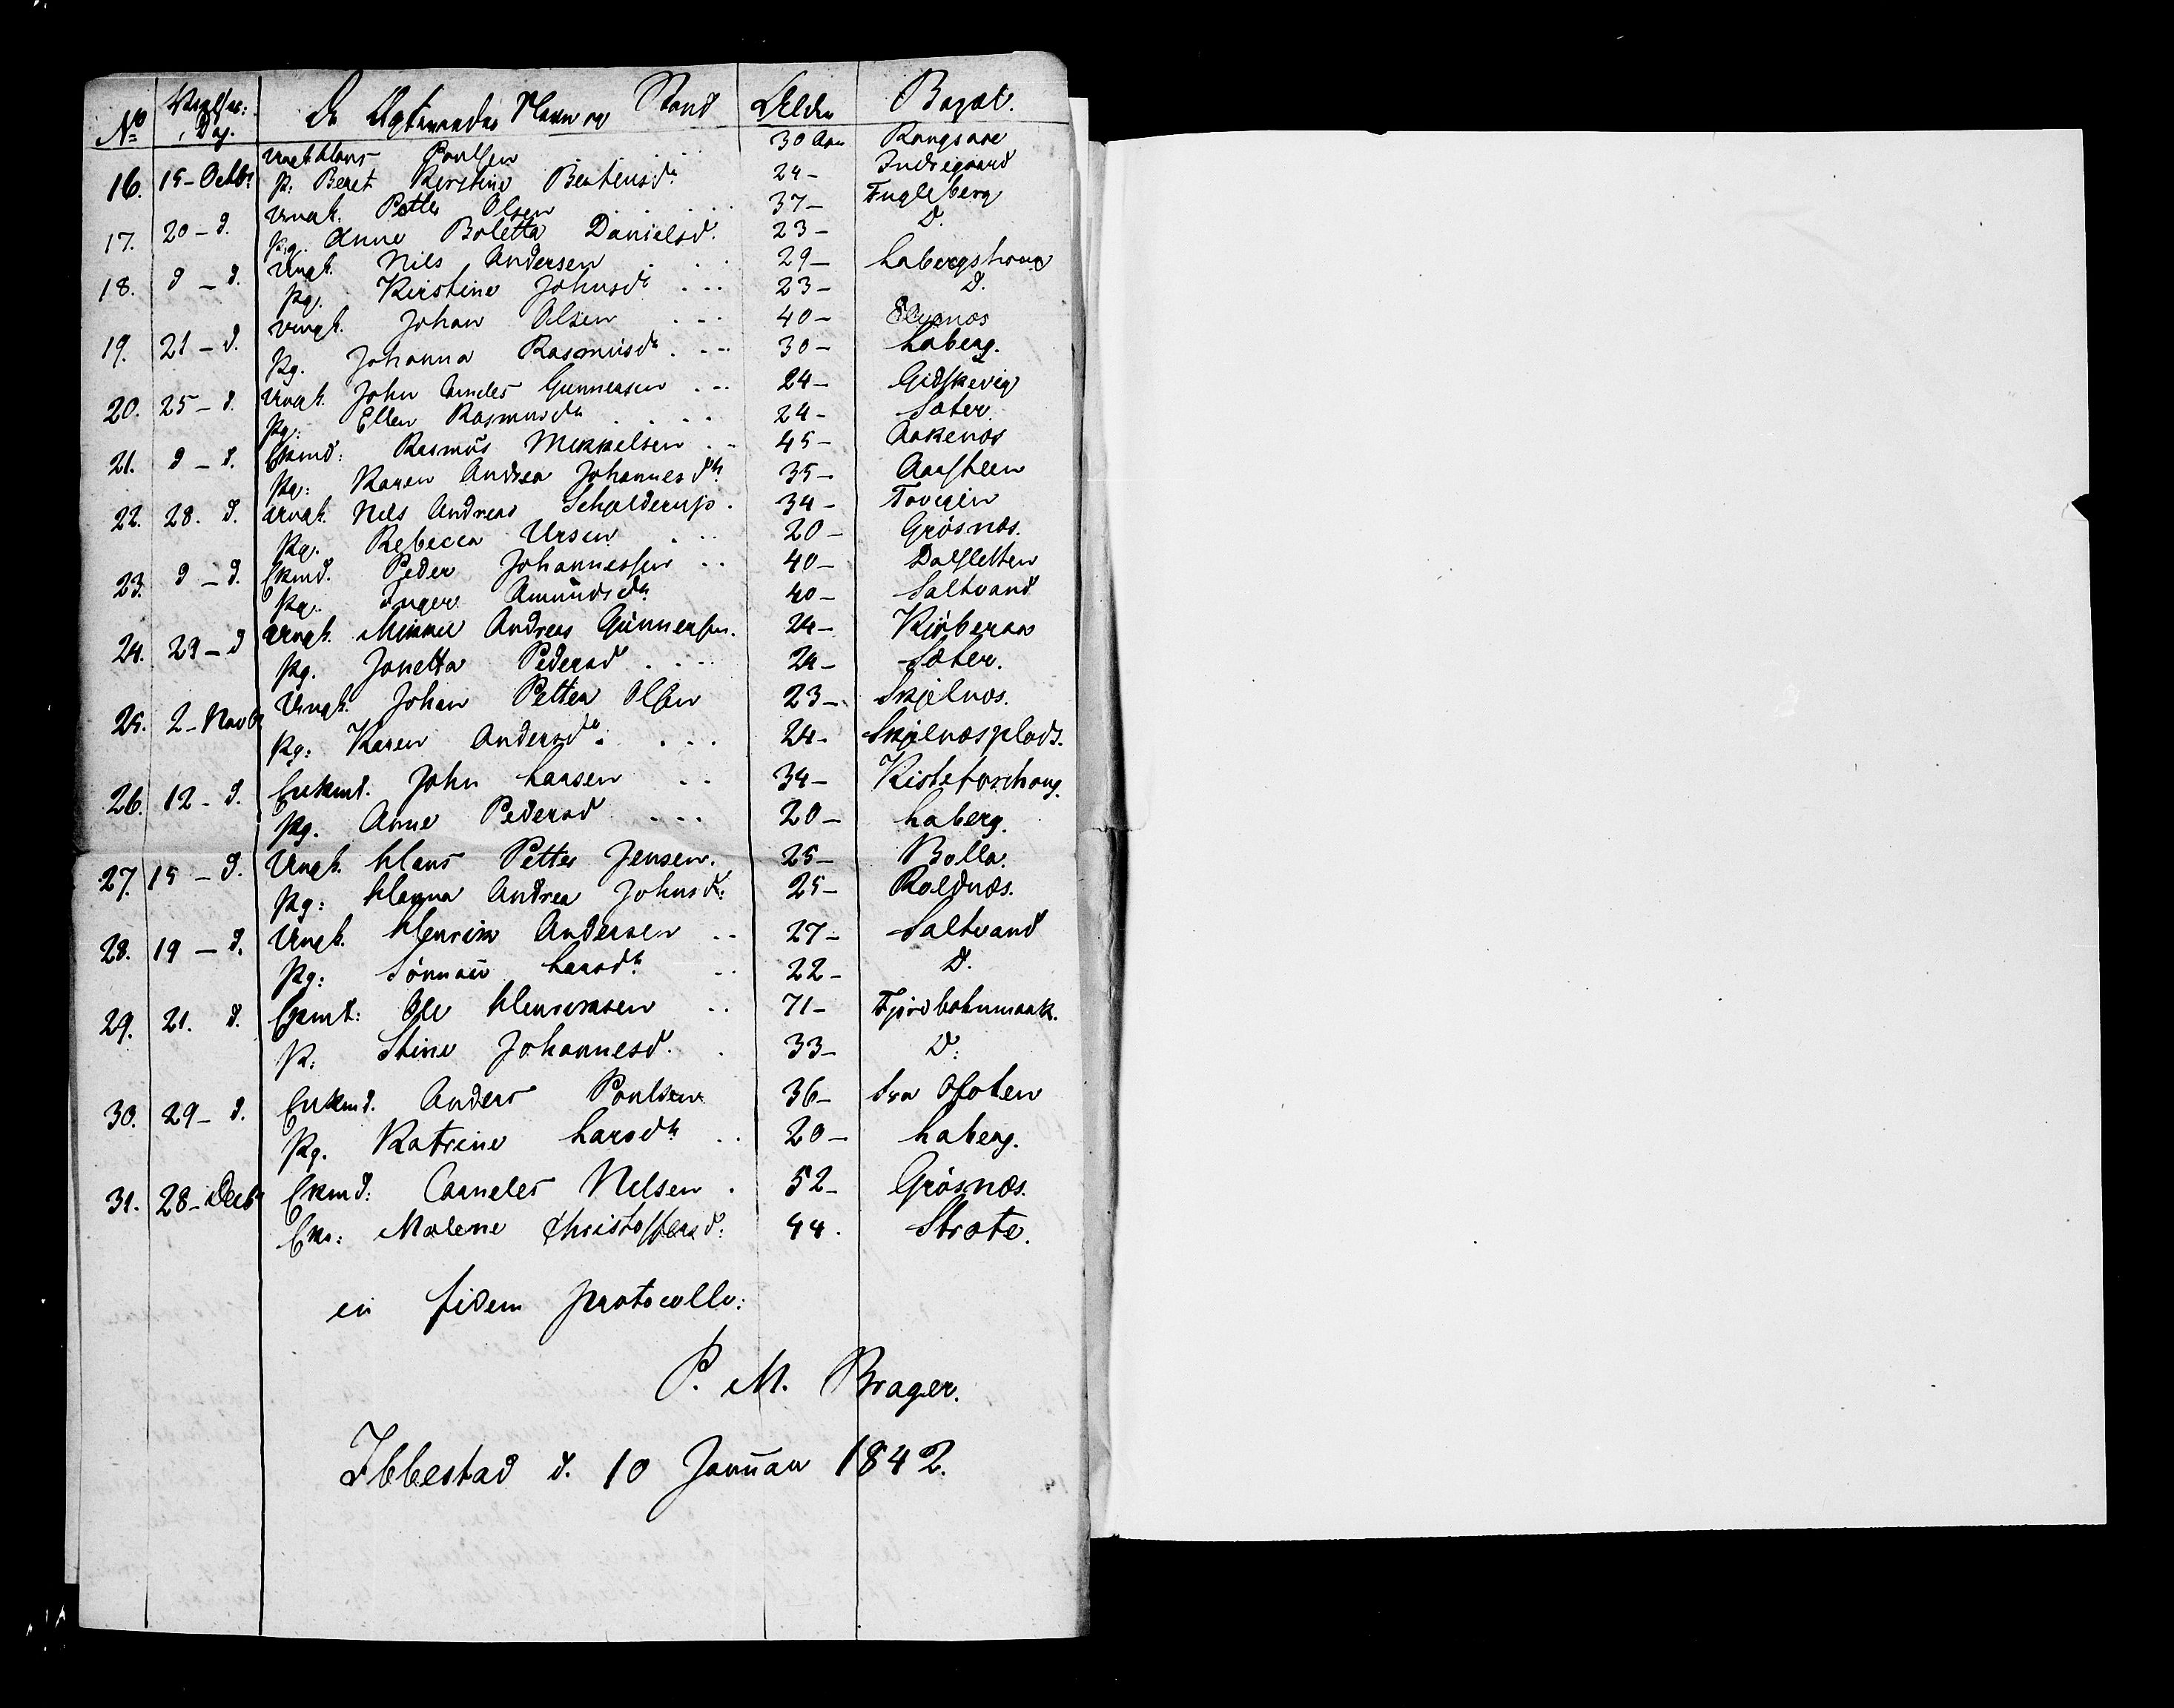 No Vielses Dag. De Ægteviedes Navn og Stand Alder Bopæl.
16. 15-Octbr Ungk Hans Poulsen 30 Aar Kongsaae
P: Beret Kirstine Bertheusdr 24- Indregaard
17. 20-d. Ungk. Petter Olsen 37- Fugleberg
Pg. Anne Boletta Danielsd. 23- D.
18. d-d. Ungk. Nils Andersen 29- Labergstrand
Pg. Kirstine Johnsdr 23- D.
19. 21-d. Ungk. Johan Olsen 40- Elvenæs
Pg. Johanna Rasmusdr. 30- Laberg.
20. 25-d. Ungk. John Gunnersen 24- Gidskevig
Pg. Ellen Rasmusdr 24- Sæter.
21. d-d. Ekmd: Rasmus Mikkelsen 45- Aakenæs
Pg: Karen Andrea Johannesdtr 35- Aarsteen
22. 28. d. Ungk. Nils Andreas Schjelderup. 34- Tovigen
Pg. Rebecca Ursin 20- Grösnæs.
23. d-d. Ekmd. Peder Johannessen 40- Dalsletten
Pg. Inger Amundsdtr 40- Saltvand
24. 29-d Ungk. Mikkel Andreas Gunnersen. 24- Kirberaa
Pg. Jonetta Pedersd. 24- Sæter.
25. 2-Novbr Ungk. Johan Petter Olsen 23- Skjelnæs.
Pg: Karen Andersdr. 24- Skjelnæsplads.
26. 12-d. Enkmd. John Larsen 34- Kistefoshaug.
Pg. Anne Pedersd 20- Laberg.
27. 15-d. Ungk. Hans Petter Jensen. 25- Bolla.
Pg: Hanna Andrea Johnsd: 25- Roldnæs.
28. 19-d. Ungk. Henrik Andersen 27- Saltvand
Pg: Sönnau Larsdtr 22- D.
29. 21. d. Ekmd: Ole Henriksen 71- Fjordbotnmaark.
P: Stine Johannesd. 33- D:
30. 29-d. Enkmd. Anders Poulsen 36- fra Ofoten
Pg. Katrine Larsdtr 20- Laberg.
31. 28-Decbr Ekmd: Corneles Nilsen. 52- Grösnæs.
Eke: Malene Christoffersd: 44. Strate.
in fidem protocolli:
P. M. Brager.
Ibbestad d. 10 Januar 1842.